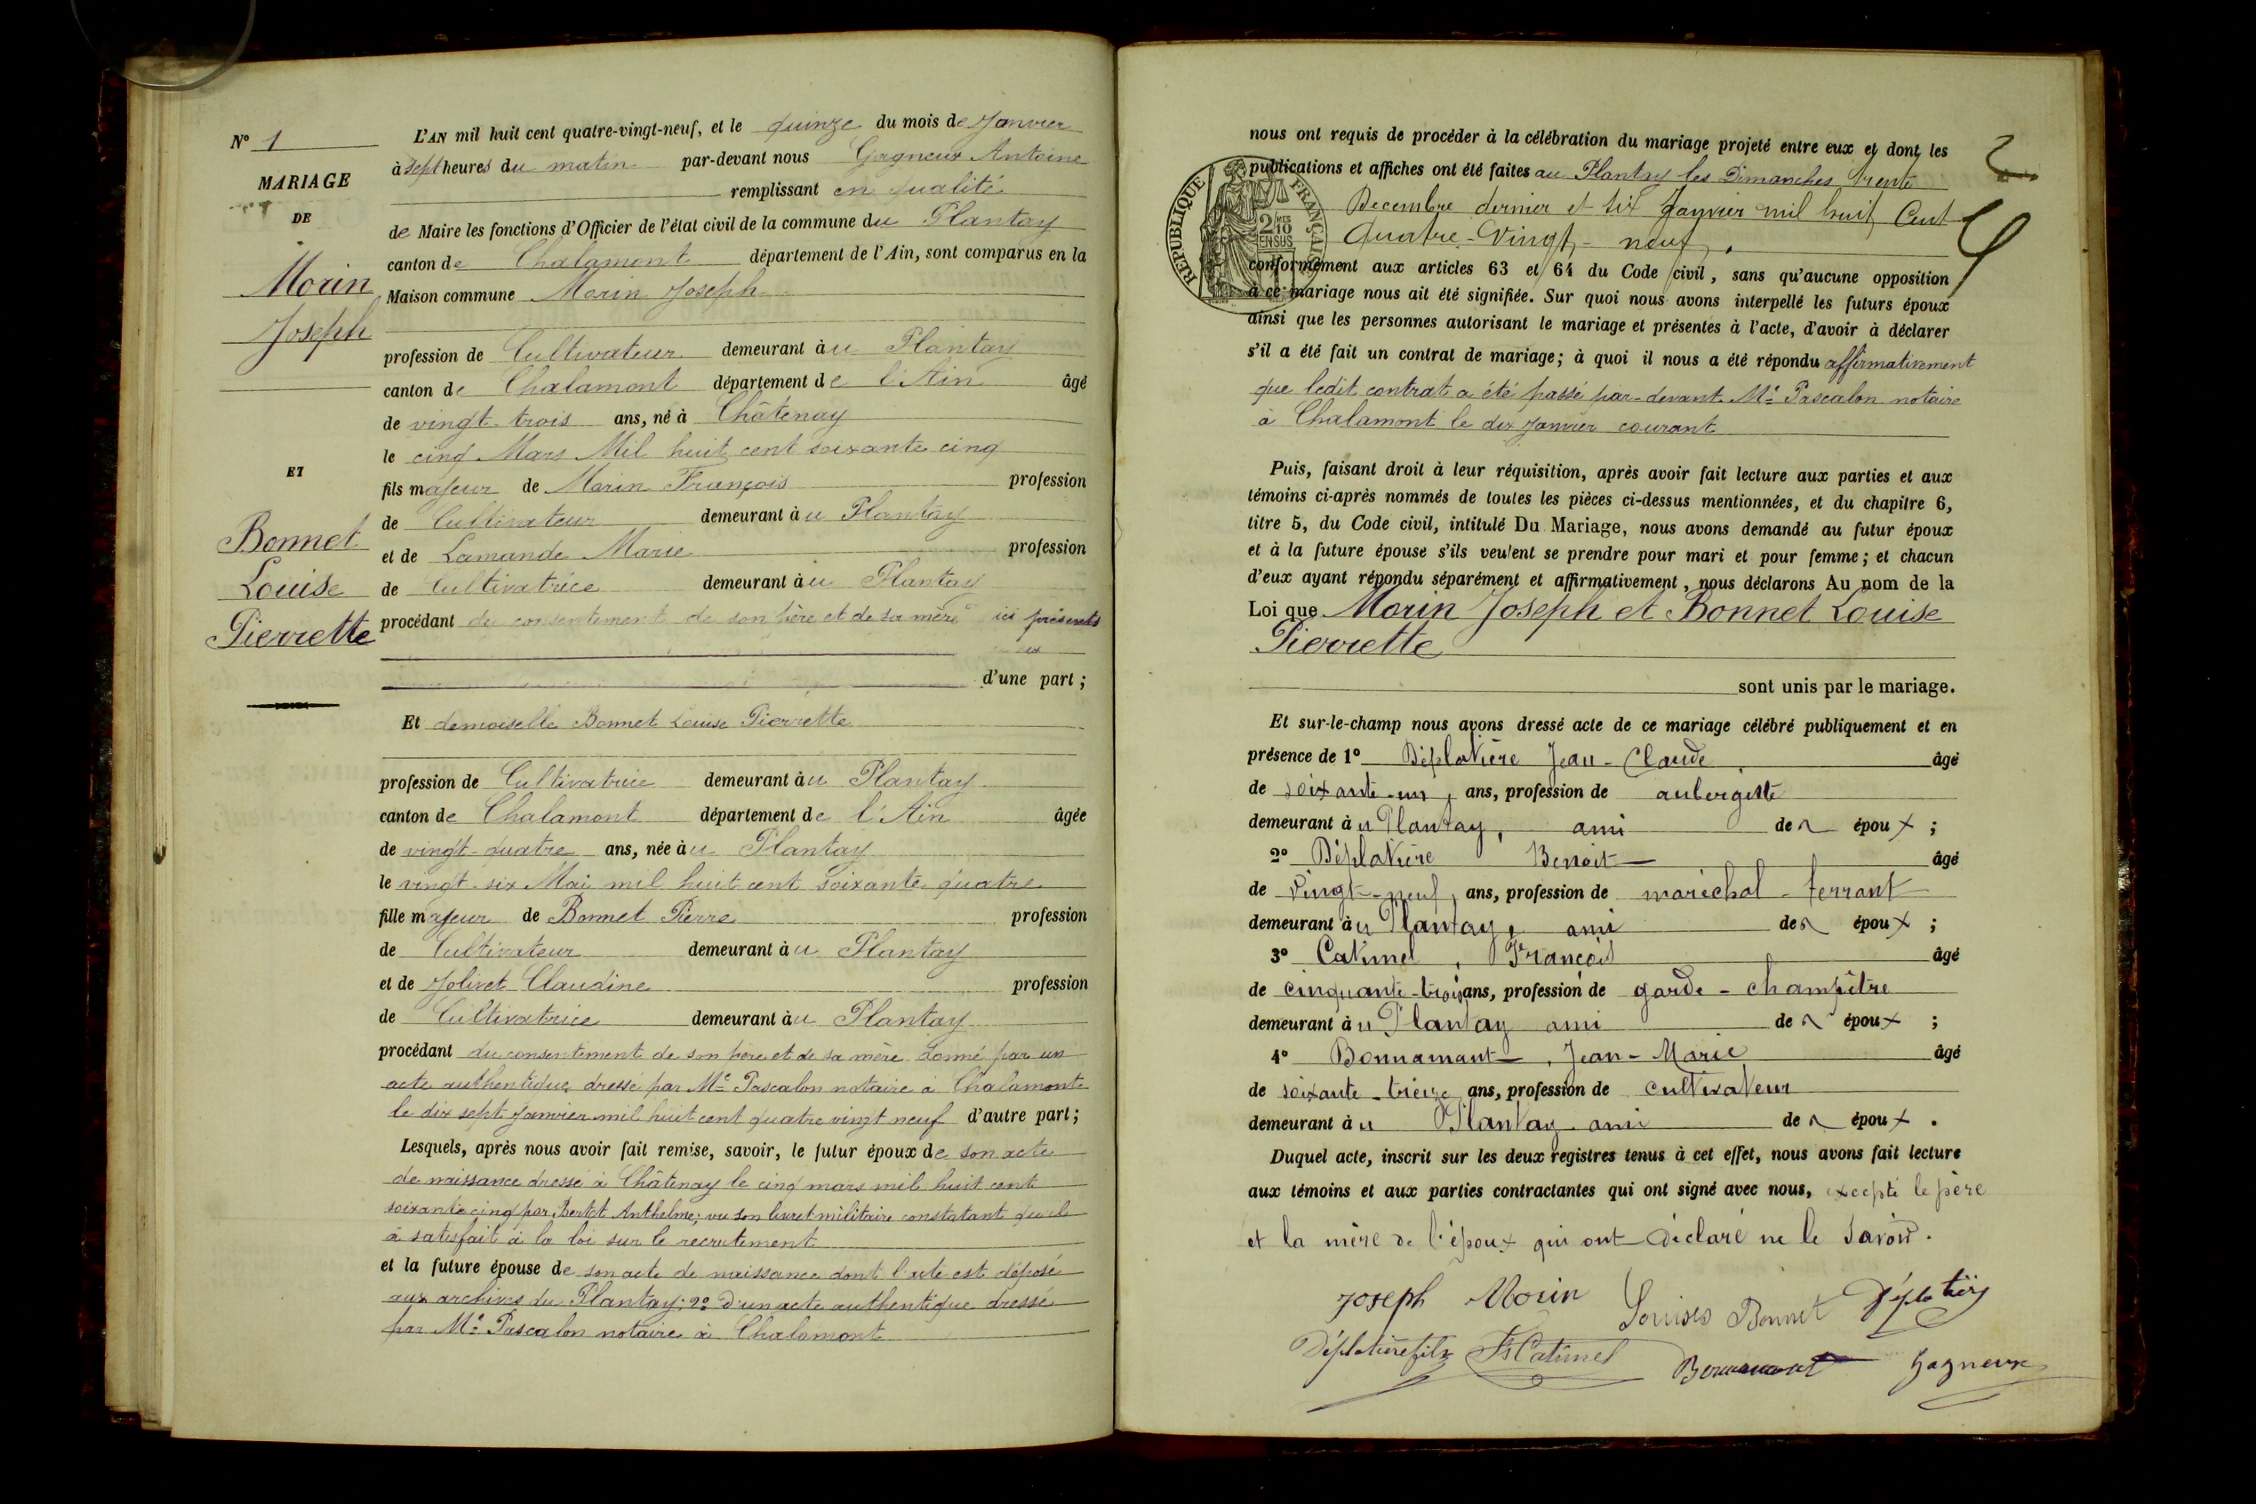 N° 1
MARIAGE
DE
Morin
Joseph
ET
Bonnet
Louise
Pierrette
L'AN mil huit cent quatre-vingt-neuf, et le quinze du mois de Janvier
à sept heures du matin par-devant nous Gagneux Antoine
remplissant en qualité
de Maire les fonctions d'Officier de l'état civil de la commune du Plantay
canton de Chalamont département de l'Ain, sont comparus en la
Maison commune Morin Joseph
profession de Cultivateur demeurant à u Plantay
canton de Chalamont département de l'Ain âgé
de vingt-trois ans, né à Châtenay
le cinq Mars Mil huit cent soixante cinq
fils majeur de Morin François profession
de Cultivateur demeurant à u Plantay
et de Lamande Marie profession
de Cultivatrice demeurant à u Plantay
procédant du consentement de son père et de sa mère ici présents
d'une part ;
Et demoiselle Bonnet Louise Pierrette
profession de Cultivatrice demeurant à u Plantay
canton de Chalamont département de l'Ain âgée
de vingt-quatre ans, née à u Plantay
le vingt-six Mai mil huit cent soixante quatre
fille majeur de Bonnet Pierre profession
de Cultivateur demeurant à u Plantay
et de Jolivet Claudine profession
de Cultivatrice demeurant à u Plantay
procédant du consentement de son père et de sa mère donné par un
acte authentique dressé par Me Pascalon notaire à Chalamont
le dix sept Janvier mil huit cent quatre vingt neuf d'autre part ;
Lesquels, après nous avoir fait remise, savoir, le futur époux de son acte
de naissance dressé à Châtenay le cinq mars mil huit cent
soixante cinq par Bertet Anthelme ; vu son livret militaire constatant qu'il
a satisfait à la loi sur le recrutement
et la future épouse de son acte de naissance dont l'acte est déposé
aux archives du Plantay ; 2° d'un acte authentique dressé
par Me Pascalon notaire à Chalamont
nous ont requis de procéder à la célébration du mariage projeté entre eux et dont les
publications et affiches ont été faites au Plantay les Dimanches trente
Décembre dernier et six Janvier mil huit Cent
Quatre-Vingt-neuf,
RÉPUBLIQUE FRANÇAISE
2/10 MES EN SUS
conformément aux articles 63 et 64 du Code civil, sans qu'aucune opposition
à ce mariage nous ait été signifiée. Sur quoi nous avons interpellé les futurs époux
ainsi que les personnes autorisant le mariage et présentes à l'acte, d'avoir à déclarer
s'il a été fait un contrat de mariage ; à quoi il nous a été répondu affirmativement
que ledit contrat a été passé par-devant Me Pascalon notaire
à Chalamont le dix Janvier courant
Puis, faisant droit à leur réquisition, après avoir fait lecture aux parties et aux
témoins ci-après nommés de toutes les pièces ci-dessus mentionnées, et du chapitre 6,
titre 5, du Code civil, intitulé Du Mariage, nous avons demandé au futur époux
et à la future épouse s'ils veulent se prendre pour mari et pour femme ; et chacun
d'eux ayant répondu séparément et affirmativement, nous déclarons Au nom de la
Loi que Morin Joseph et Bonnet Louise
Pierrette
sont unis par le mariage.
Et sur-le-champ nous avons dressé acte de ce mariage célébré publiquement et en
présence de 1° Déplatière Jean-Claude âgé
de soixante-un, ans, profession de aubergiste
demeurant à u Plantay, ami de l' époux ;
2° Déplatière Benoit âgé
de vingt-neuf, ans, profession de maréchal-ferrant
demeurant à u Plantay, ami de l' époux ;
3° Catimel, François âgé
de cinquante-trois ans, profession de garde-champêtre
demeurant à u Plantay ami de l' époux ;
4° Bonnamant, Jean-Marie âgé
de soixante-treize, ans, profession de cultivateur
demeurant à u Plantay ami de l' époux .
Duquel acte, inscrit sur les deux registres tenus à cet effet, nous avons fait lecture
aux témoins et aux parties contractantes qui ont signé avec nous, excepté le père
et la mère de l'époux qui ont déclaré ne le savoir.
Joseph Morin Louise Bonnet Déplatière
Déplatière fils Fs Catimel Bonnamant Gagneux